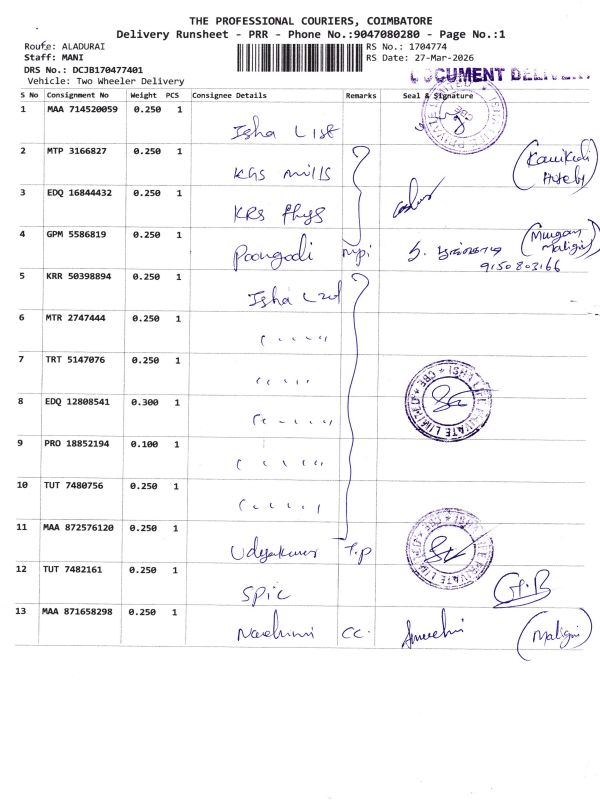 THE PROFESSIONAL COURIERS, COIMBATORE
Delivery Runsheet - PRR - Phone No.:9047080280 - Page No.:1
Route: ALADURAI
RS No.: 1704774
Staff: MANI
RS Date: 27-Mar-2026
DRS No.: DCJB170477401
DOCUMENT DELIVERY
Vehicle: Two Wheeler Delivery
S No Consignment No Weight PCS Consignee Details Remarks Seal & Signature
1 MAA 714520059 0.250 1 Isha List
2 MTP 3166827 0.250 1 KGS mills
3 EDQ 16844432 0.250 1 KRS Phys
4 GPM 5586819 0.250 1 Poongodi
(Murugan
Maligai)
9150803166
5 KRR 50398894 0.250 1 Isha
6 MTR 2747444 0.250 1
7 TRT 5147076 0.250 1
8 EDQ 12808541 0.300 1
9 PRO 18852194 0.100 1
10 TUT 7480756 0.250 1
11 MAA 872576120 0.250 1 Udyakumar T.P
12 TUT 7482161 0.250 1 SPIC
13 MAA 871658298 0.250 1 CC.
ISHA LIFE PRIVATE LIMITED * CBE *
ISHA LIFE PRIVATE LIMITED * CBE *
ISHA LIFE PRIVATE LIMITED * CBE *